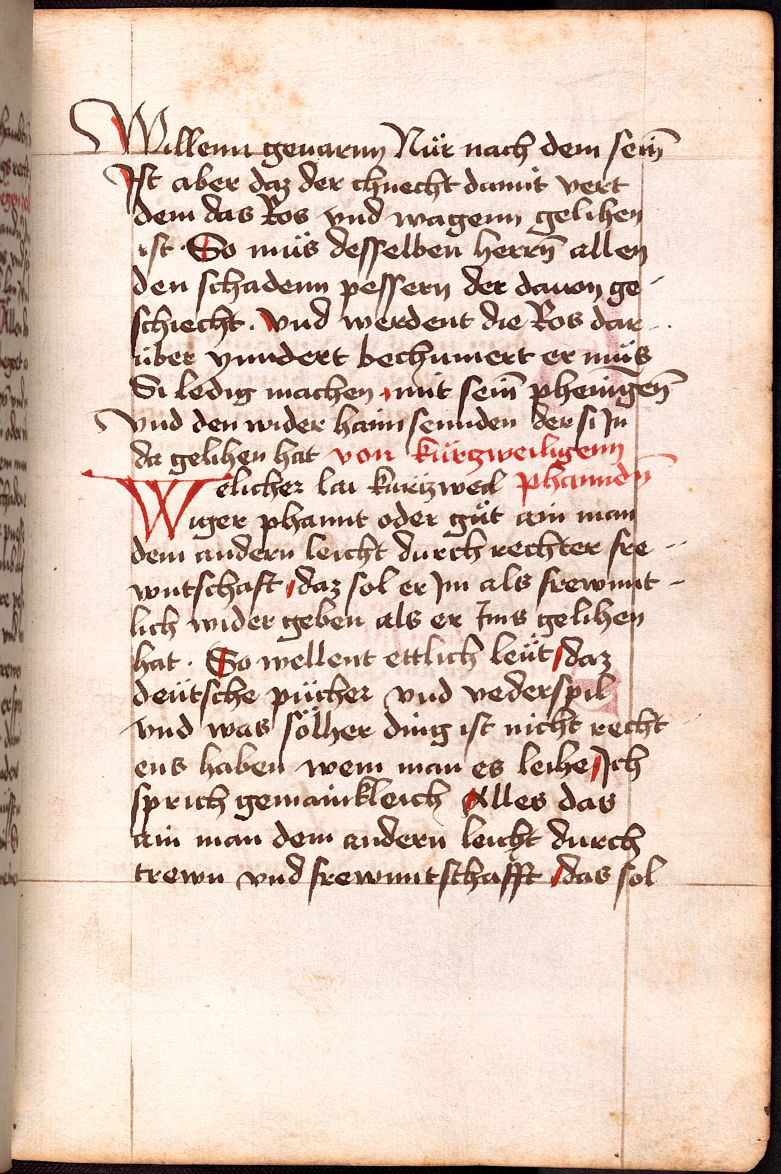 Willenn geuarnn Nür nach dem sein̄
Ist aber daz der chnecht damit vert
dem das Ros vnd wagenn gelihen
ist · So müs desselben herrn̄ allen
den schadenn pessern der dauon ge-
schiecht. vnd werdent die Ros dar-
über yundert bechumert er müs
Si ledig machen mit sein̄ phenigen̄
vnd den wider haim sennden der si Jn
da gelihen hat von kürtzweiligenn
Welicher lai kurtzweil phannden̄
Wiger phannt oder güt ain man
dem andern leicht durch rechter fre-
wntschaft daz sol er Jm als frewnt-
lich wider geben als er Jms gelihen
hat. So wellent ettlich leüt daz
deütsche pücher vnd vederspil
vnd was sölher ding ist nicht recht
ens haben wem man es leihe Jch
sprich gemainkleich Alles das
ain man dem andern leicht durch
trewn vnd frewntschafft das sol